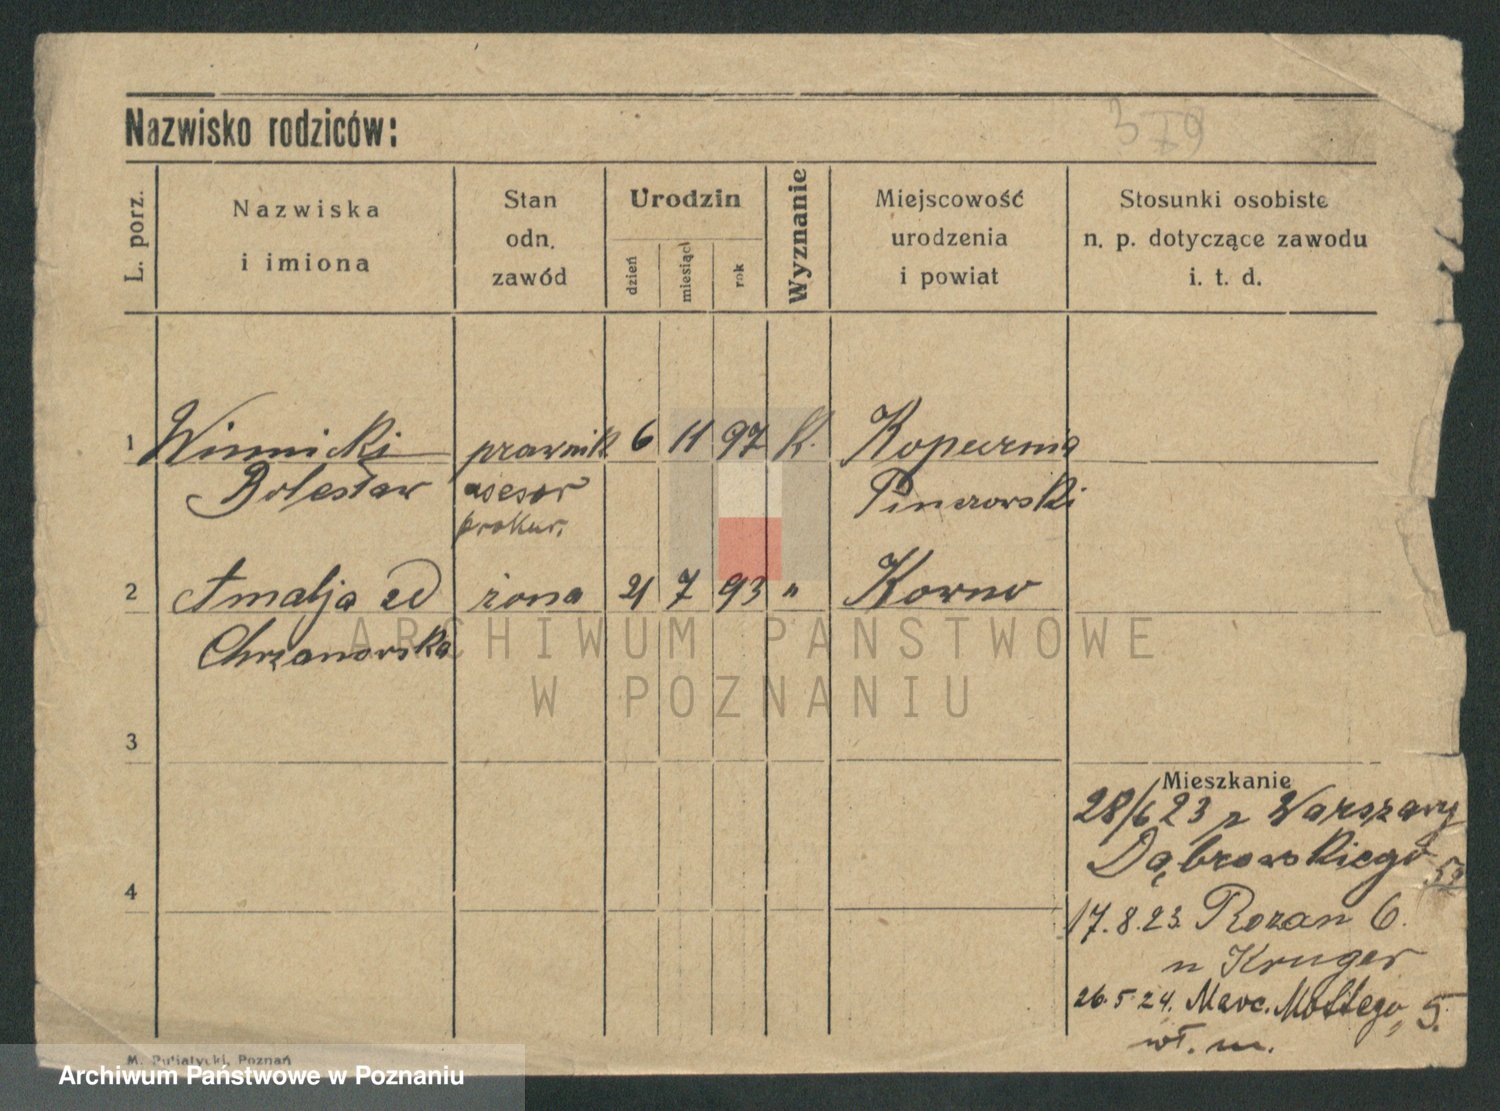 379
Nazwisko rodziców:
L. porz.
Nazwiska
i imiona
Stan
odn.
zawód
Urodzin
dzień
miesiąc
rok
Wyznanie
Miejscowość
urodzenia
i powiat
Stosunki osobiste
n. p. dotyczące zawodu
i. t. d.
1 Winnicki prawnik 6 11 97 k. Kopernia
Bolesław asesor Pinczowski
prokur.
2 Amalja zd żona 21 7 93 " Kowno
Chrzanowska
ARCHIWUM PAŃSTWOWE
W POZNANIU
3
Mieszkanie
28/6 23 z Warszawy
Dąbrowskiego 52
4
17.8.23. Rozan 6.
u Kruger
26.5.24. Marc. Mottego, 5.
wł. m.
M. Putiatycki, Poznań
Archiwum Państwowe w Poznaniu